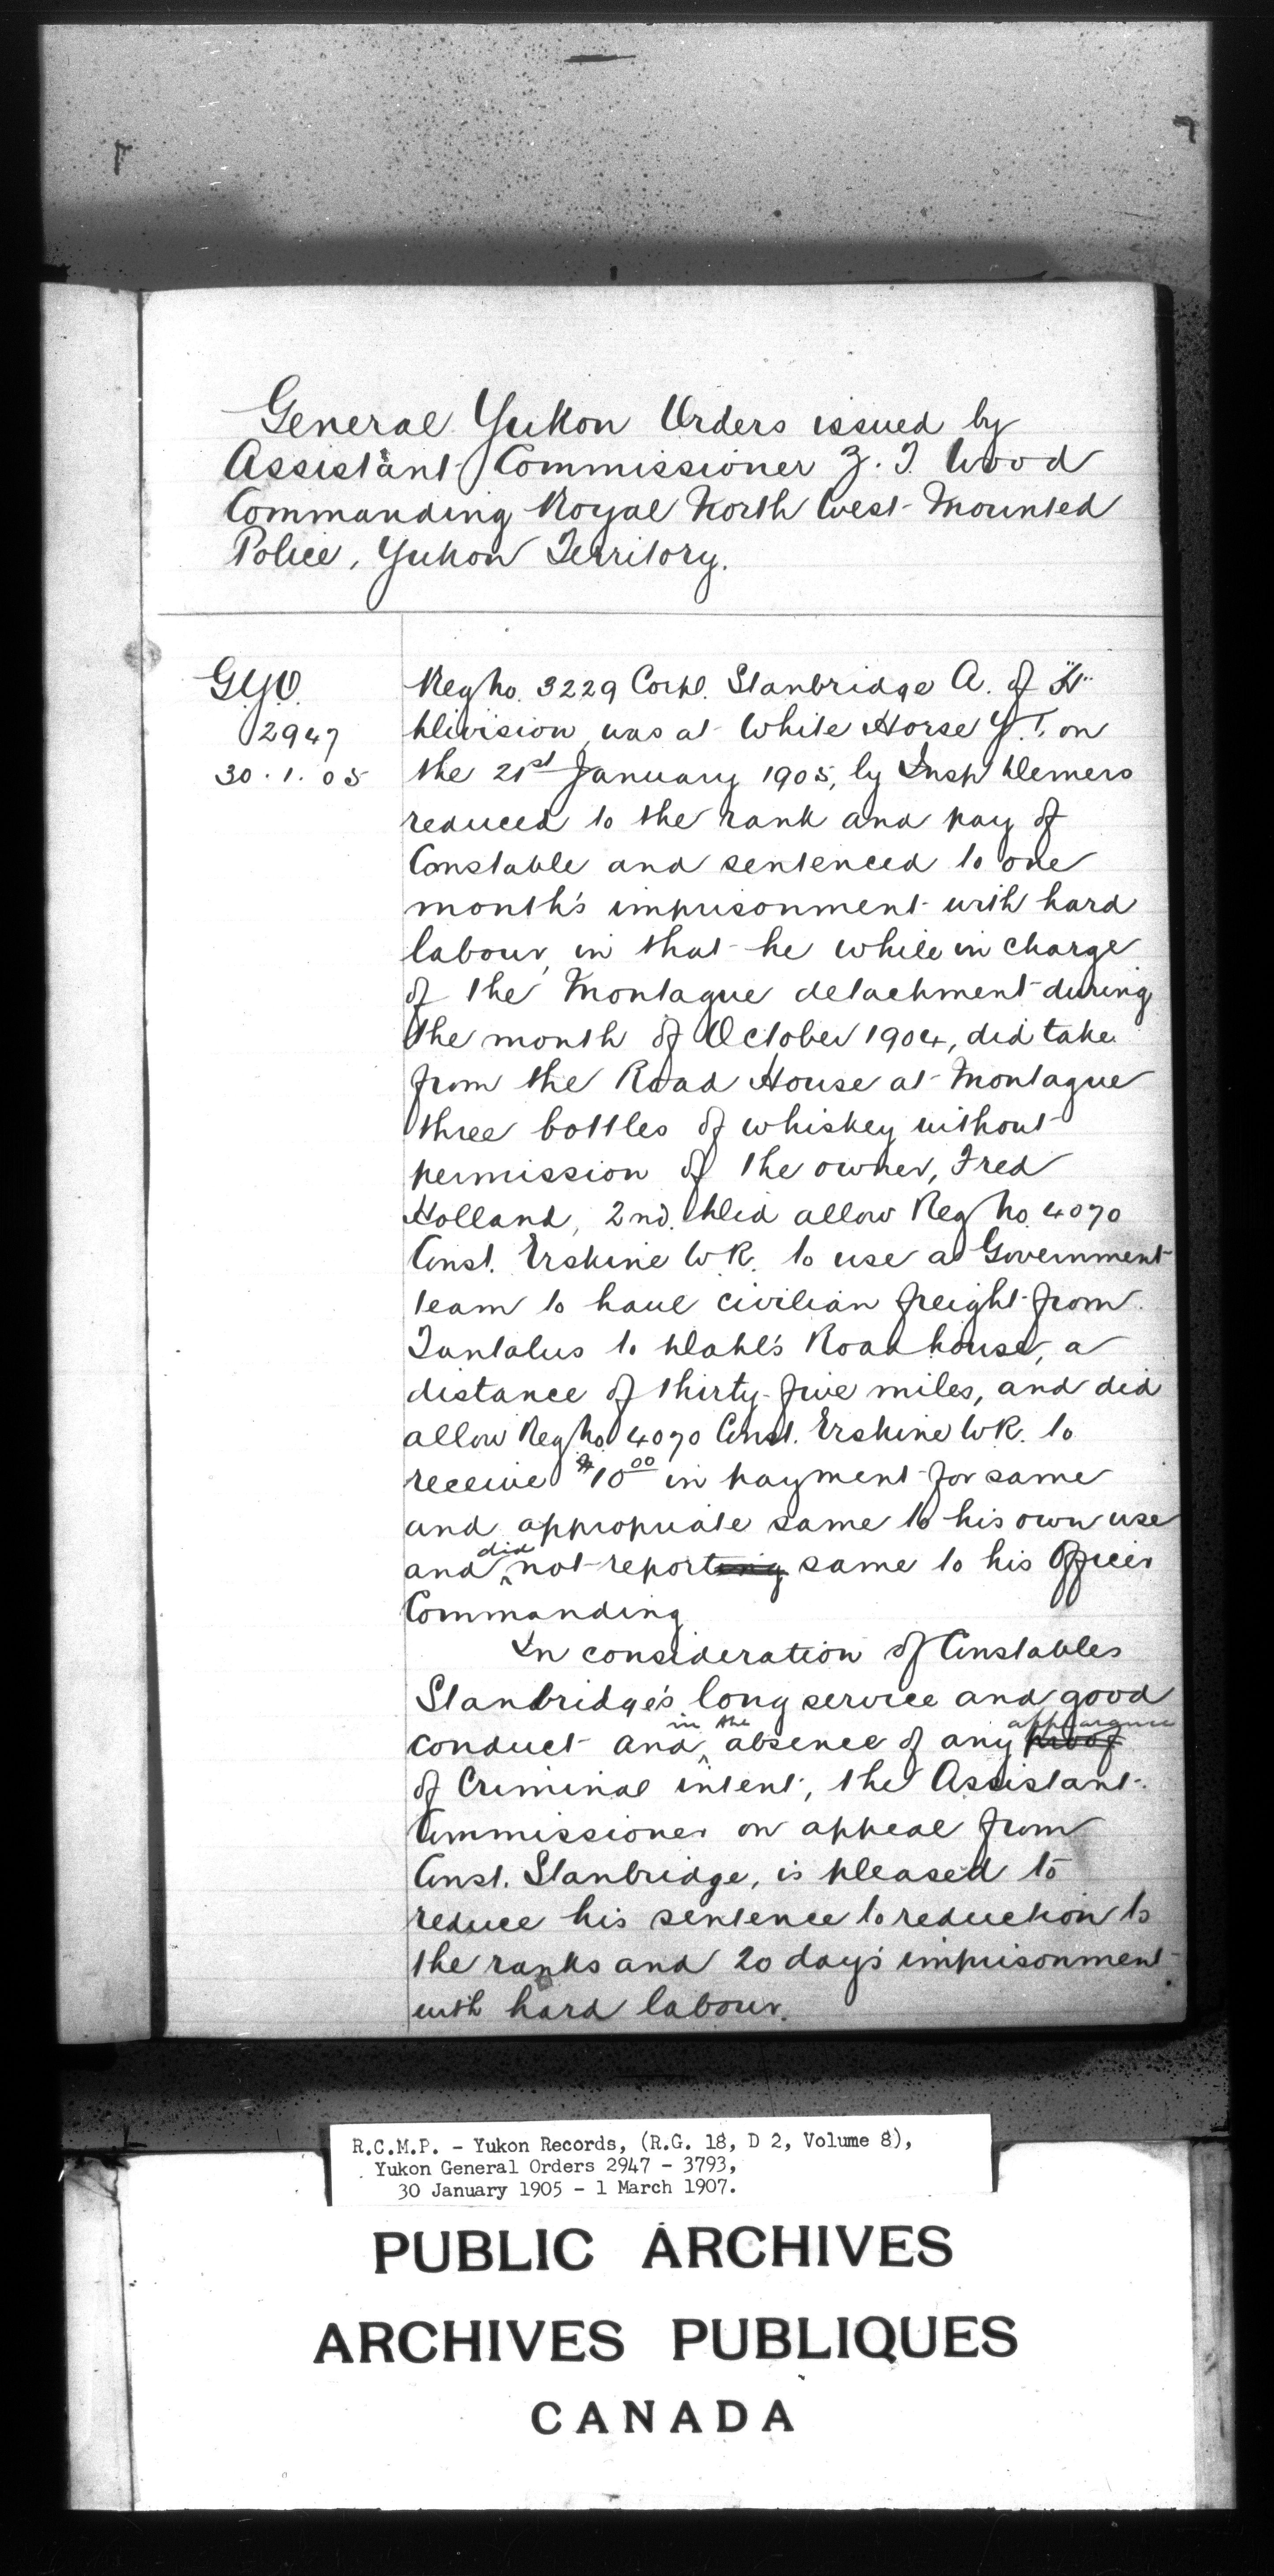 General Yukon Orders issued by
Assistant Commissioner Z. T. Wood
Commanding Royal North West Mounted
Police, Yukon Territory.
G.Y.O.
2947
30.1.05
Reg No. 3229 Corpl. Stanbridge A. of "H"
Division, was at White Horse Y.T. on
the 21st January 1905, by Insp Demers
reduced to the rank and pay of
Constable and sentenced to one
month's imprisonment with hard
labour, in that he while in charge
of the Montague detachment during
the month of October 1904, did take
from the Road House at Montague
three bottles of whiskey without
permission of the owner, Fred
Holland, 2nd. Did allow Reg No. 4070
Const. Erskine W.R. to use a Government
team to haul civilian freight from
Tantalus to Dahl's Roadhouse, a
distance of thirty-five miles, and did
allow Reg No 4070 Const. Erskine W.R. to
receive $10 00 in payment for same
and appropriate same to his own use
and did not reporting same to his Officer
Commanding
In consideration of Constables
Stanbridge's long service and good
conduct and in the absence of any proof appearance
of Criminal intent, the Assistant
Commissioner on appeal from
Const. Stanbridge, is pleased to
reduce his sentence to reduction to
the ranks and 20 days imprisonment
with hard labour.
R.C.M.P. - Yukon Records, (R.G. 18, D 2, Volume 8),
Yukon General Orders 2947 - 3793,
30 January 1905 - 1 March 1907.
PUBLIC ARCHIVES
ARCHIVES PUBLIQUES
CANADA